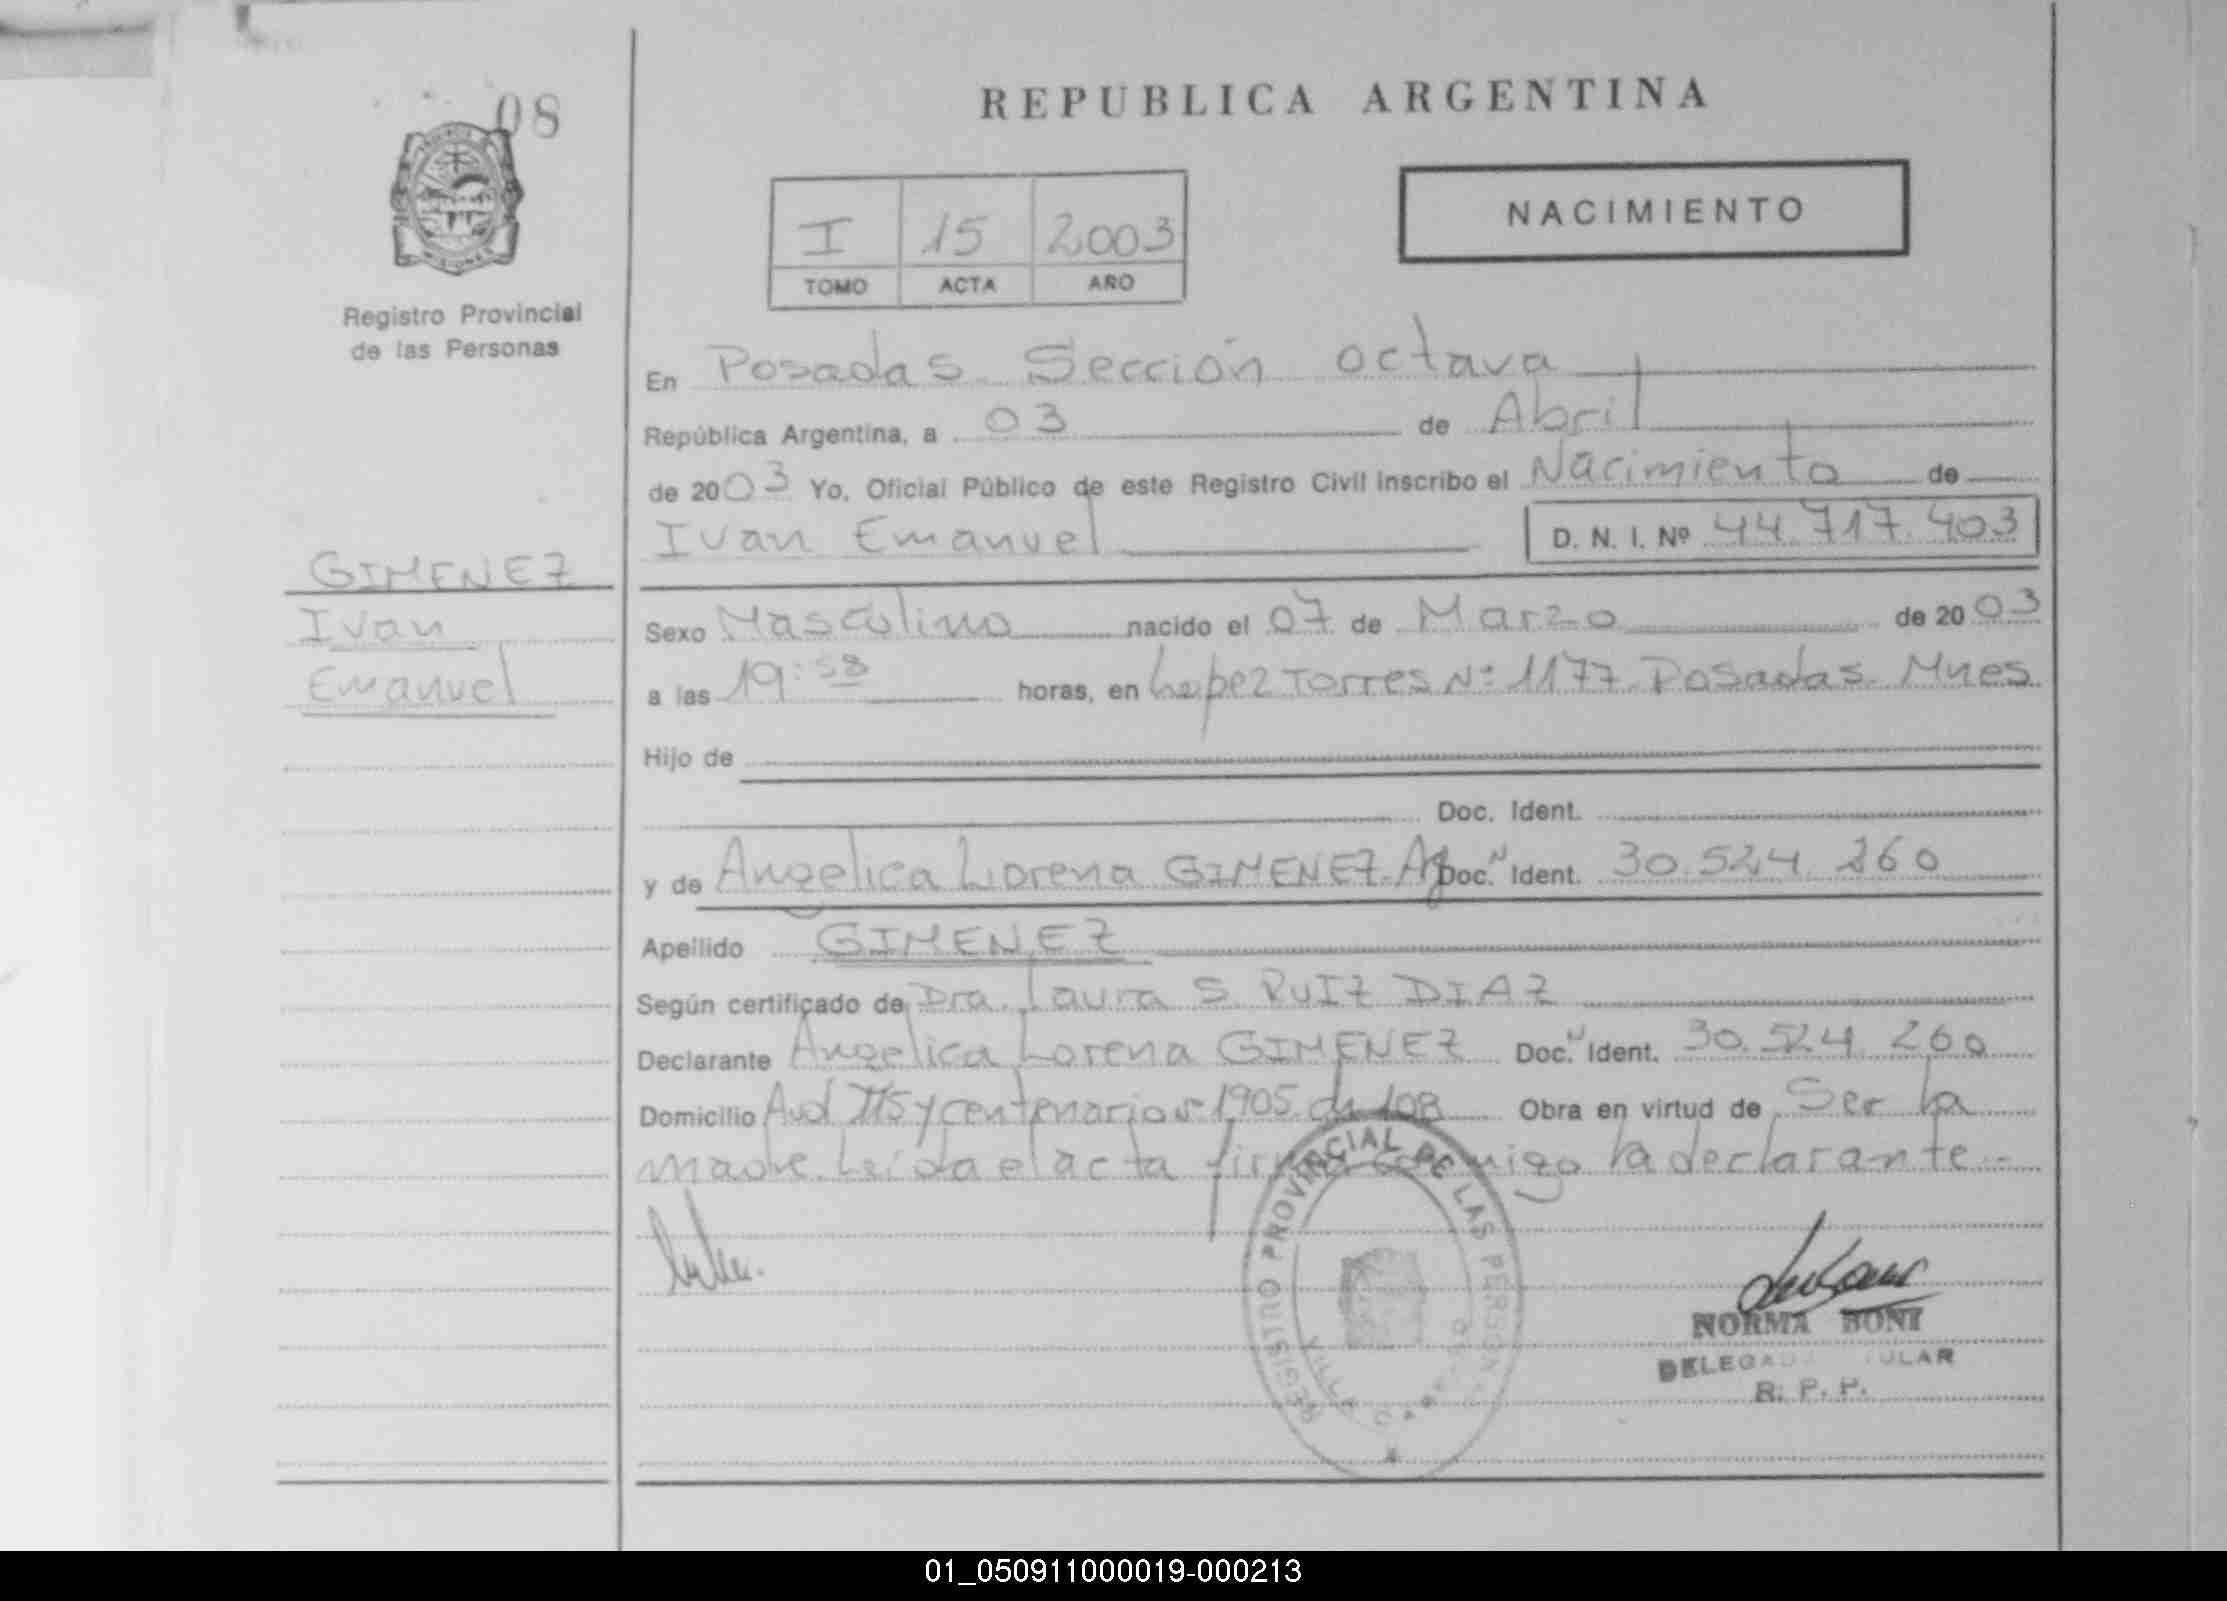 08
REPUBLICA ARGENTINA
NACIMIENTO
I 15 2003
TOMO ACTA AÑO
Registro Provincial
de las Personas
En Posadas Sección octava
República Argentina, a 03 de Abril
de 2003 Yo, Oficial Público de este Registro Civil inscribo el Nacimiento de
Ivan Emanuel D. N. I. Nº 44.717.403
GIMENEZ
Ivan
Emanuel
Sexo Masculino nacido el 07 de Marzo de 2003
a las 19:58 horas, en Lopez Torres Nº 1177 Posadas Mnes
Hijo de
Doc. Ident.
y de Angelica Lorena GIMENEZ Doc. Ident. 30.524.260
Apellido GIMENEZ
Según certificado de Dra. Laura S. RUIZ DIAZ
Declarante Angelica Lorena GIMENEZ Doc. Ident. 30.524.260
Domicilio Avd 115 y centenario 1905 ch 108 Obra en virtud de Ser la
madre. Leída el acta firma conmigo la declarante.-
REGISTRO PROVINCIAL DE LAS PERSONAS
VILLA CABELLO
NORMA BONI
DELEGADA TITULAR
R. P. P.
01_050911000019-000213